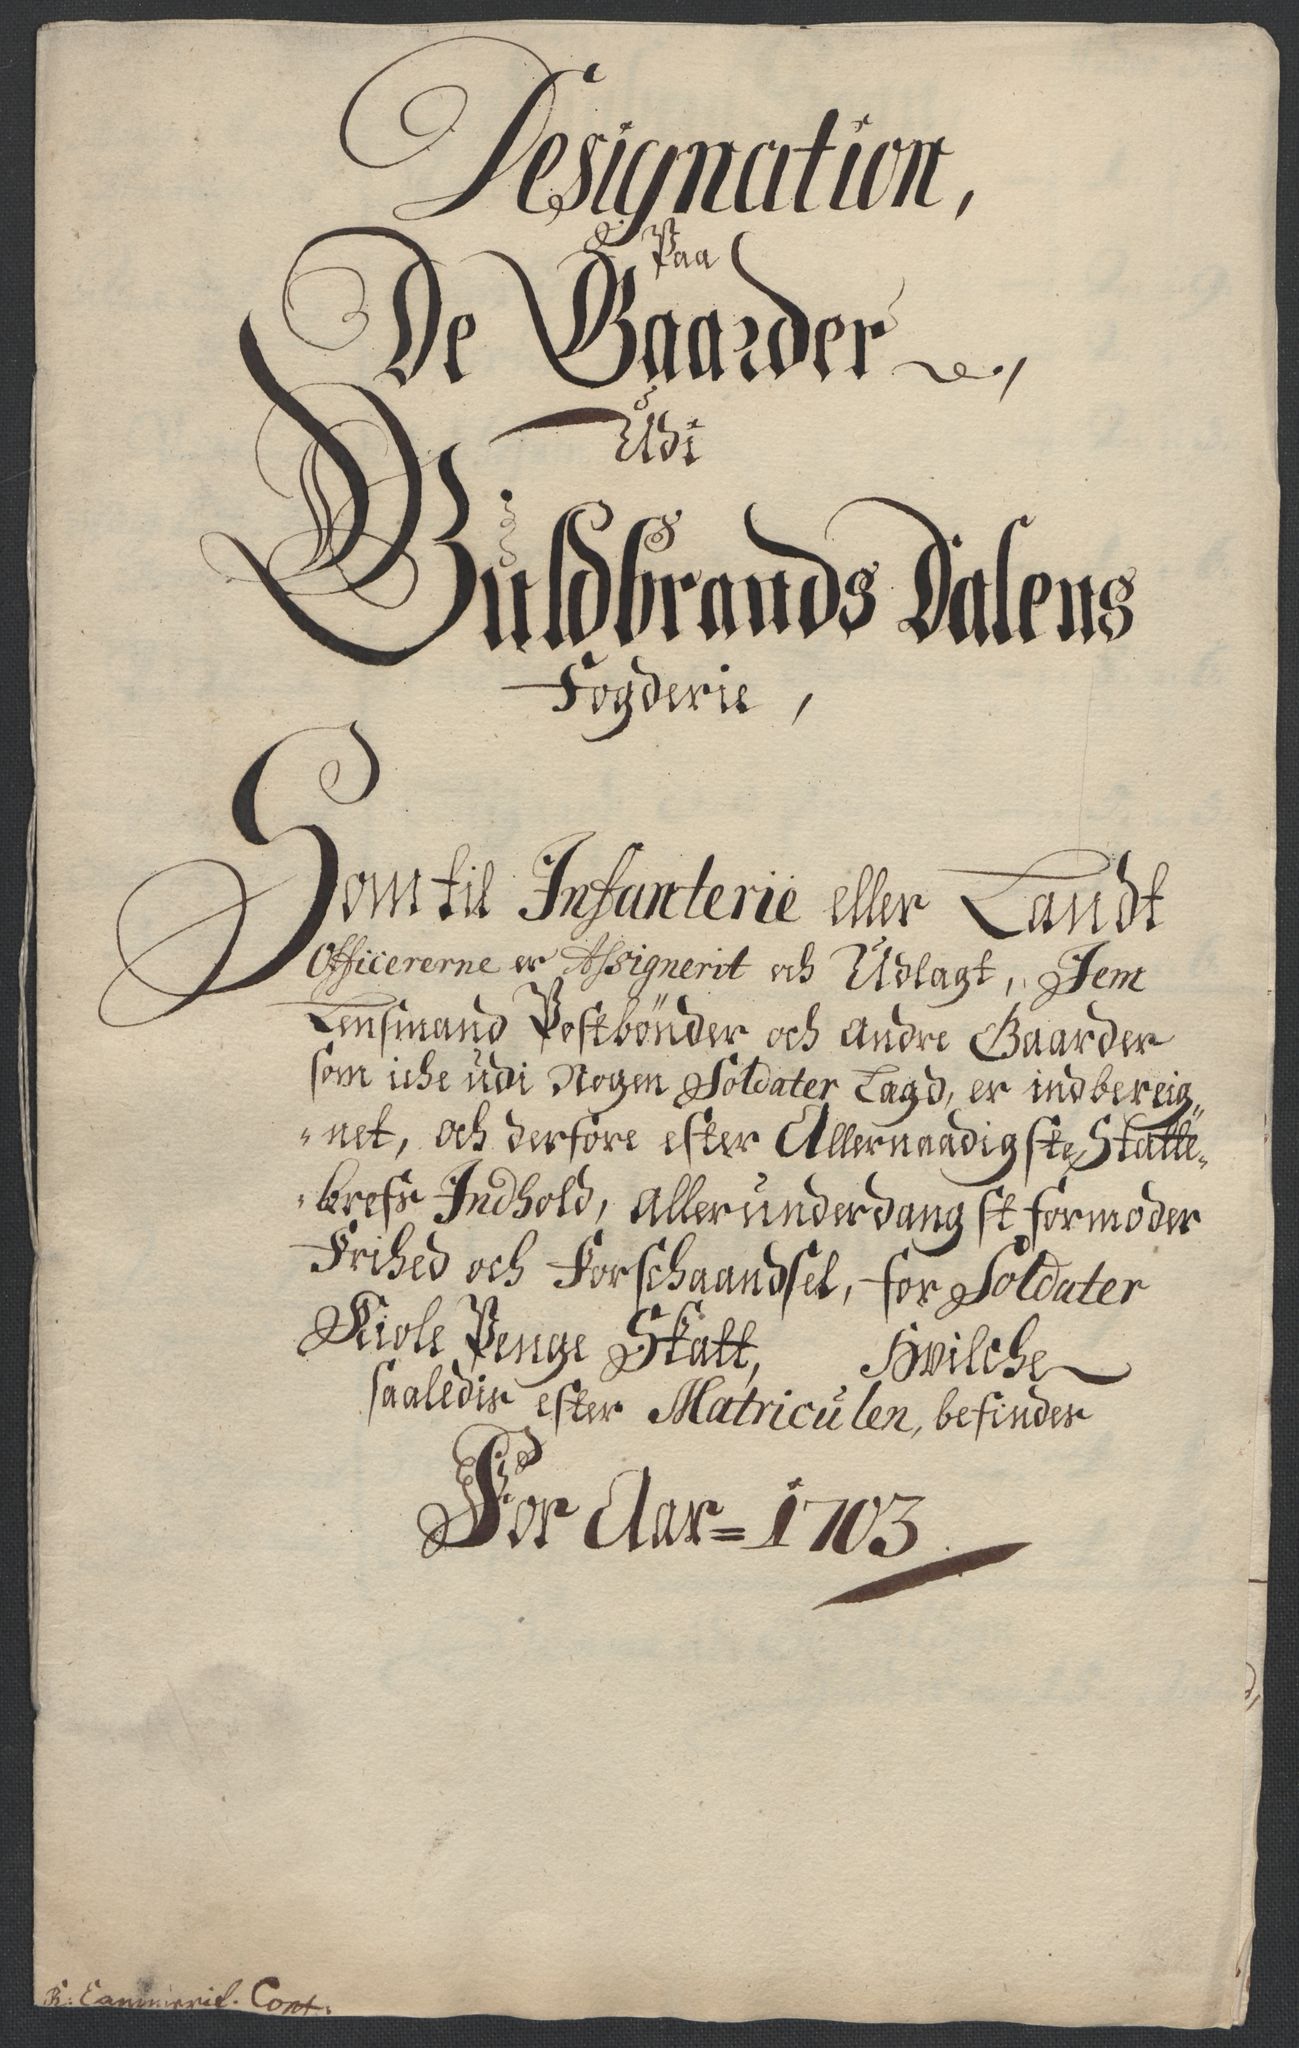 Designation,
Paa
De Gaarder
Udi
Guldbrands Dalens
Fogderie,
Som til Infanterie eller Landt
Officererne er Assignerit och Udlagt, Jem
Lensmand Postbönder och Andre Gaarder
som iche udi Nogen Soldater Lagd, er indbereig„
„net, och derfore efter Allernaadigste Skatte„
„brefs Indhold, Allerunderdangst formoder
Frihed och Forschaandsel, for Soldater
Kiole Penge Skatt, Hvilche
saaledis efter Matriculen, befindes
For Aar=1703
R: Cammerid. Cont: